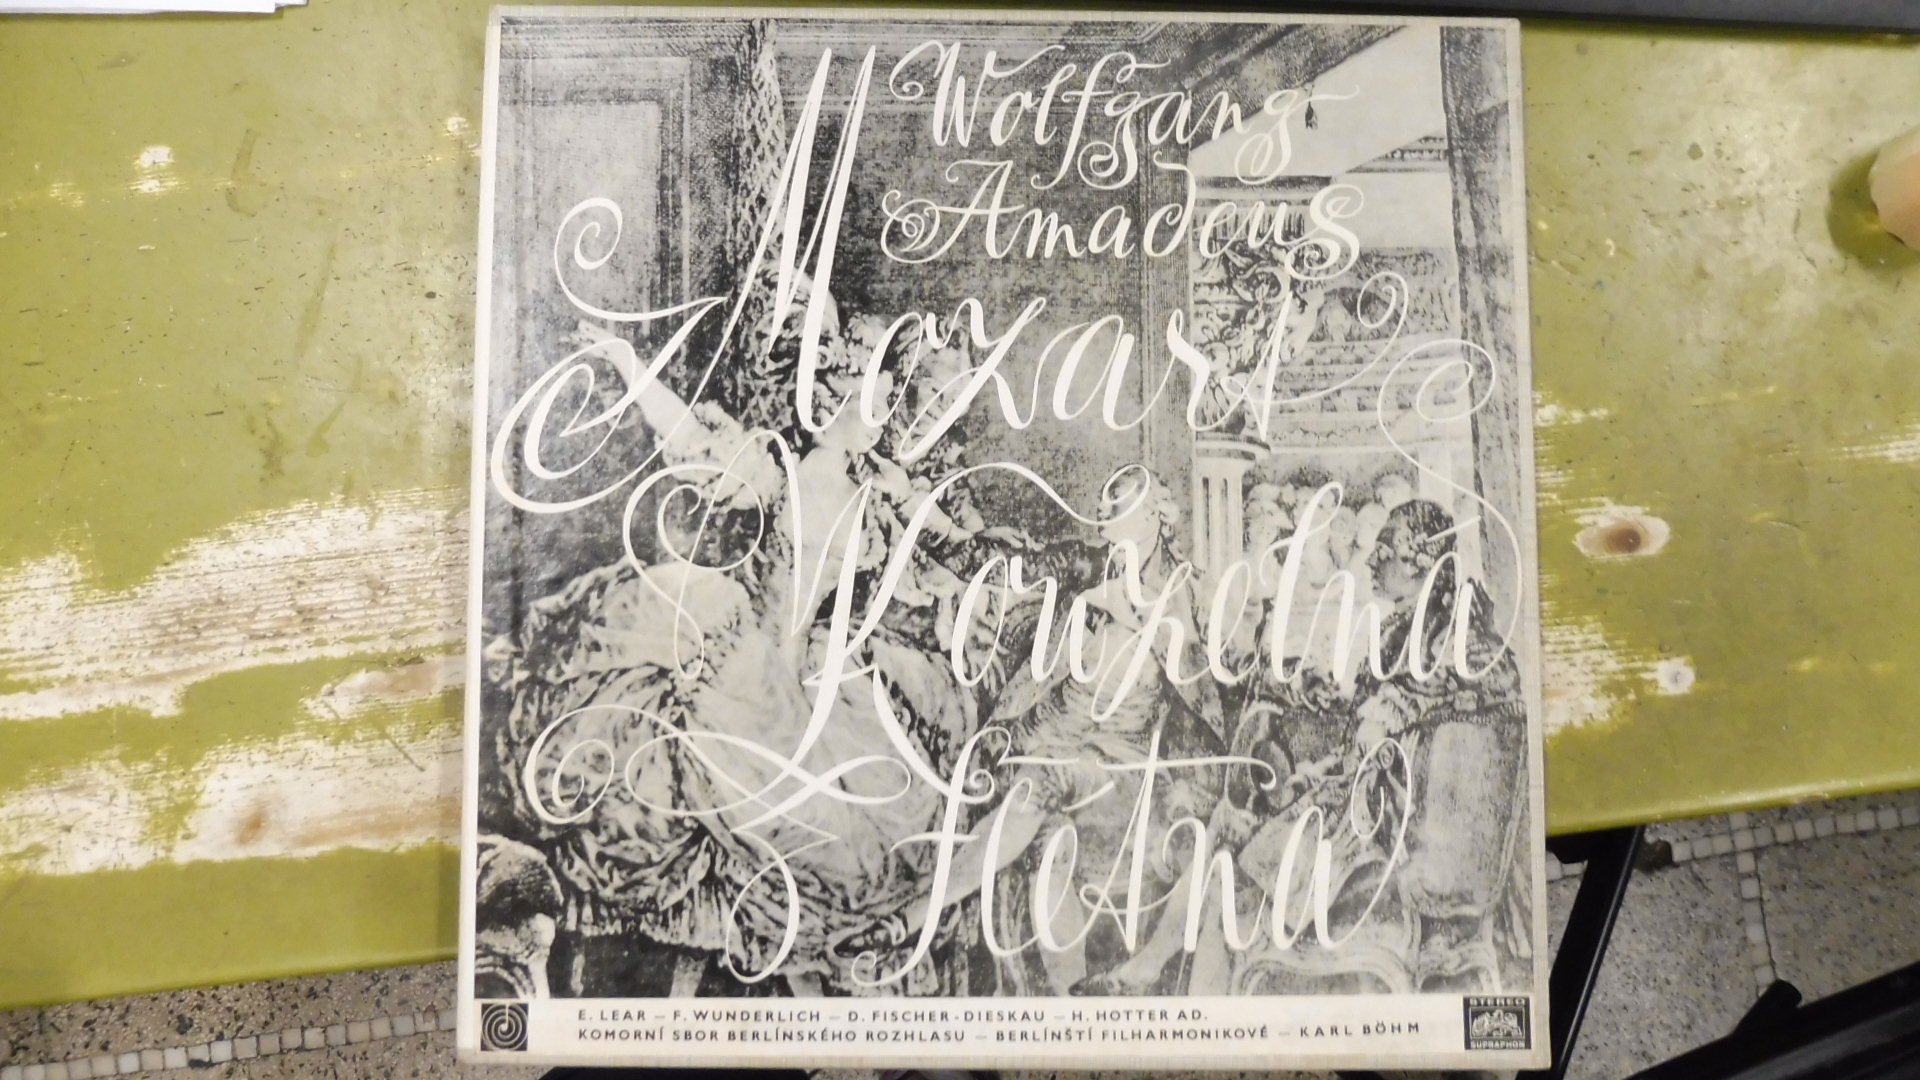 Wolfgang
Amadeus
Mozart
Kouzelná
flétna
E. LEAR – F. WUNDERLICH – D. FISCHER-DIESKAU – H. HOTTER AD.
KOMORNÍ SBOR BERLÍNSKÉHO ROZHLASU – BERLÍNŠTÍ FILHARMONIKOVÉ – KARL BÖHM
STEREO
SUPRAPHON